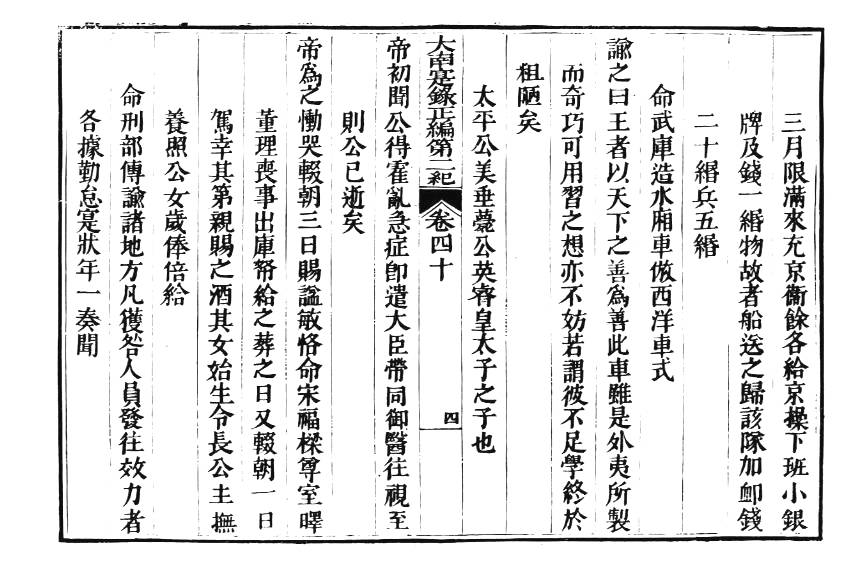 三月限滿來充京衞餘各給京操下班小銀
牌及錢一緡物故者船送之歸該隊加卹錢
二十緡兵五緡
命武庫造水廂車倣西洋車式
諭之曰王者以天下之善爲善此車雖是外夷所製
而奇巧可用習之想亦不妨若謂彼不足學終於
粗陋矣
太平公美垂薨公英睿皇太子之子也
大南寔錄正編第二紀 卷四十 四
帝初聞公得霍亂急症卽遣大臣帶同御醫往視至
則公已逝矣
帝爲之慟哭輟朝三日賜諡敏恪命宋福樑尊室曎
董理喪事出庫帑給之葬之日又輟朝一日
駕幸其第親賜之酒其女始生令長公主撫
養照公女歲俸倍給
命刑部傳諭諸地方凡獲咎人員發往效力者
各據勤怠寔狀年一奏聞